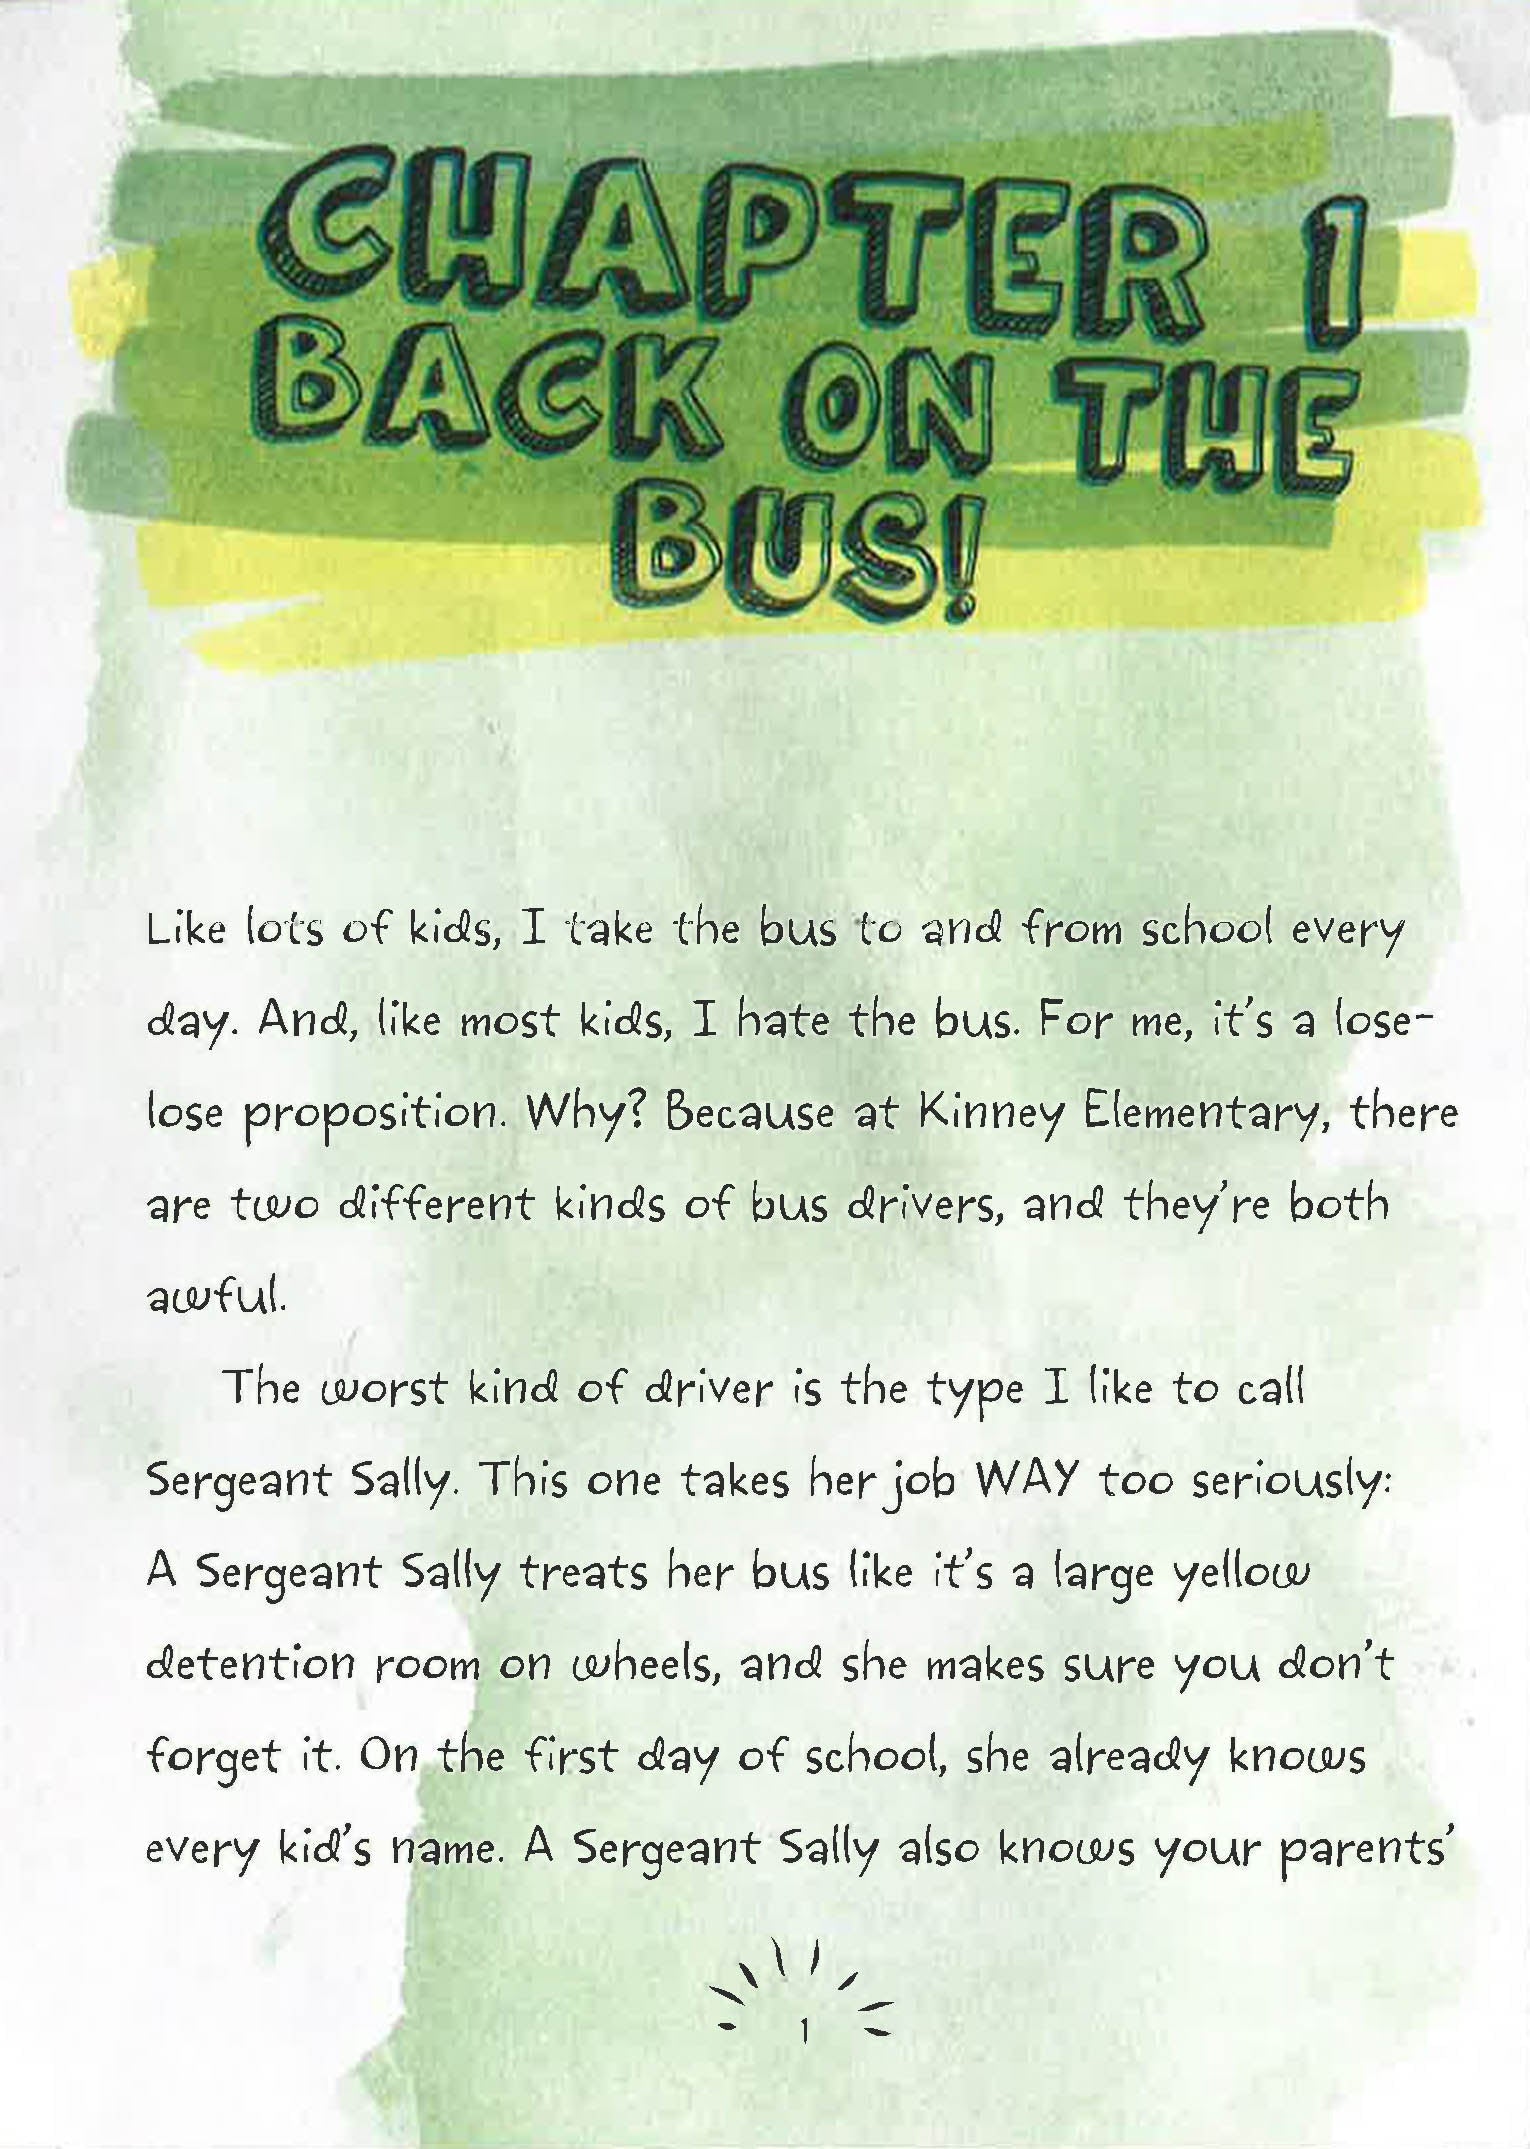 CHAPTER 1
BACK ON THE
BUS!
Like lots of kids, I take the bus to and from school every
day. And, like most kids, I hate the bus. For me, it's a lose-
lose proposition. Why? Because at Kinney Elementary, there
are two different kinds of bus drivers, and they're both
awful.
The worst kind of driver is the type I like to call
Sergeant Sally. This one takes her job WAY too seriously:
A Sergeant Sally treats her bus like it's a large yellow
detention room on wheels, and she makes sure you don't
forget it. On the first day of school, she already knows
every kid's name. A Sergeant Sally also knows your parents'
1